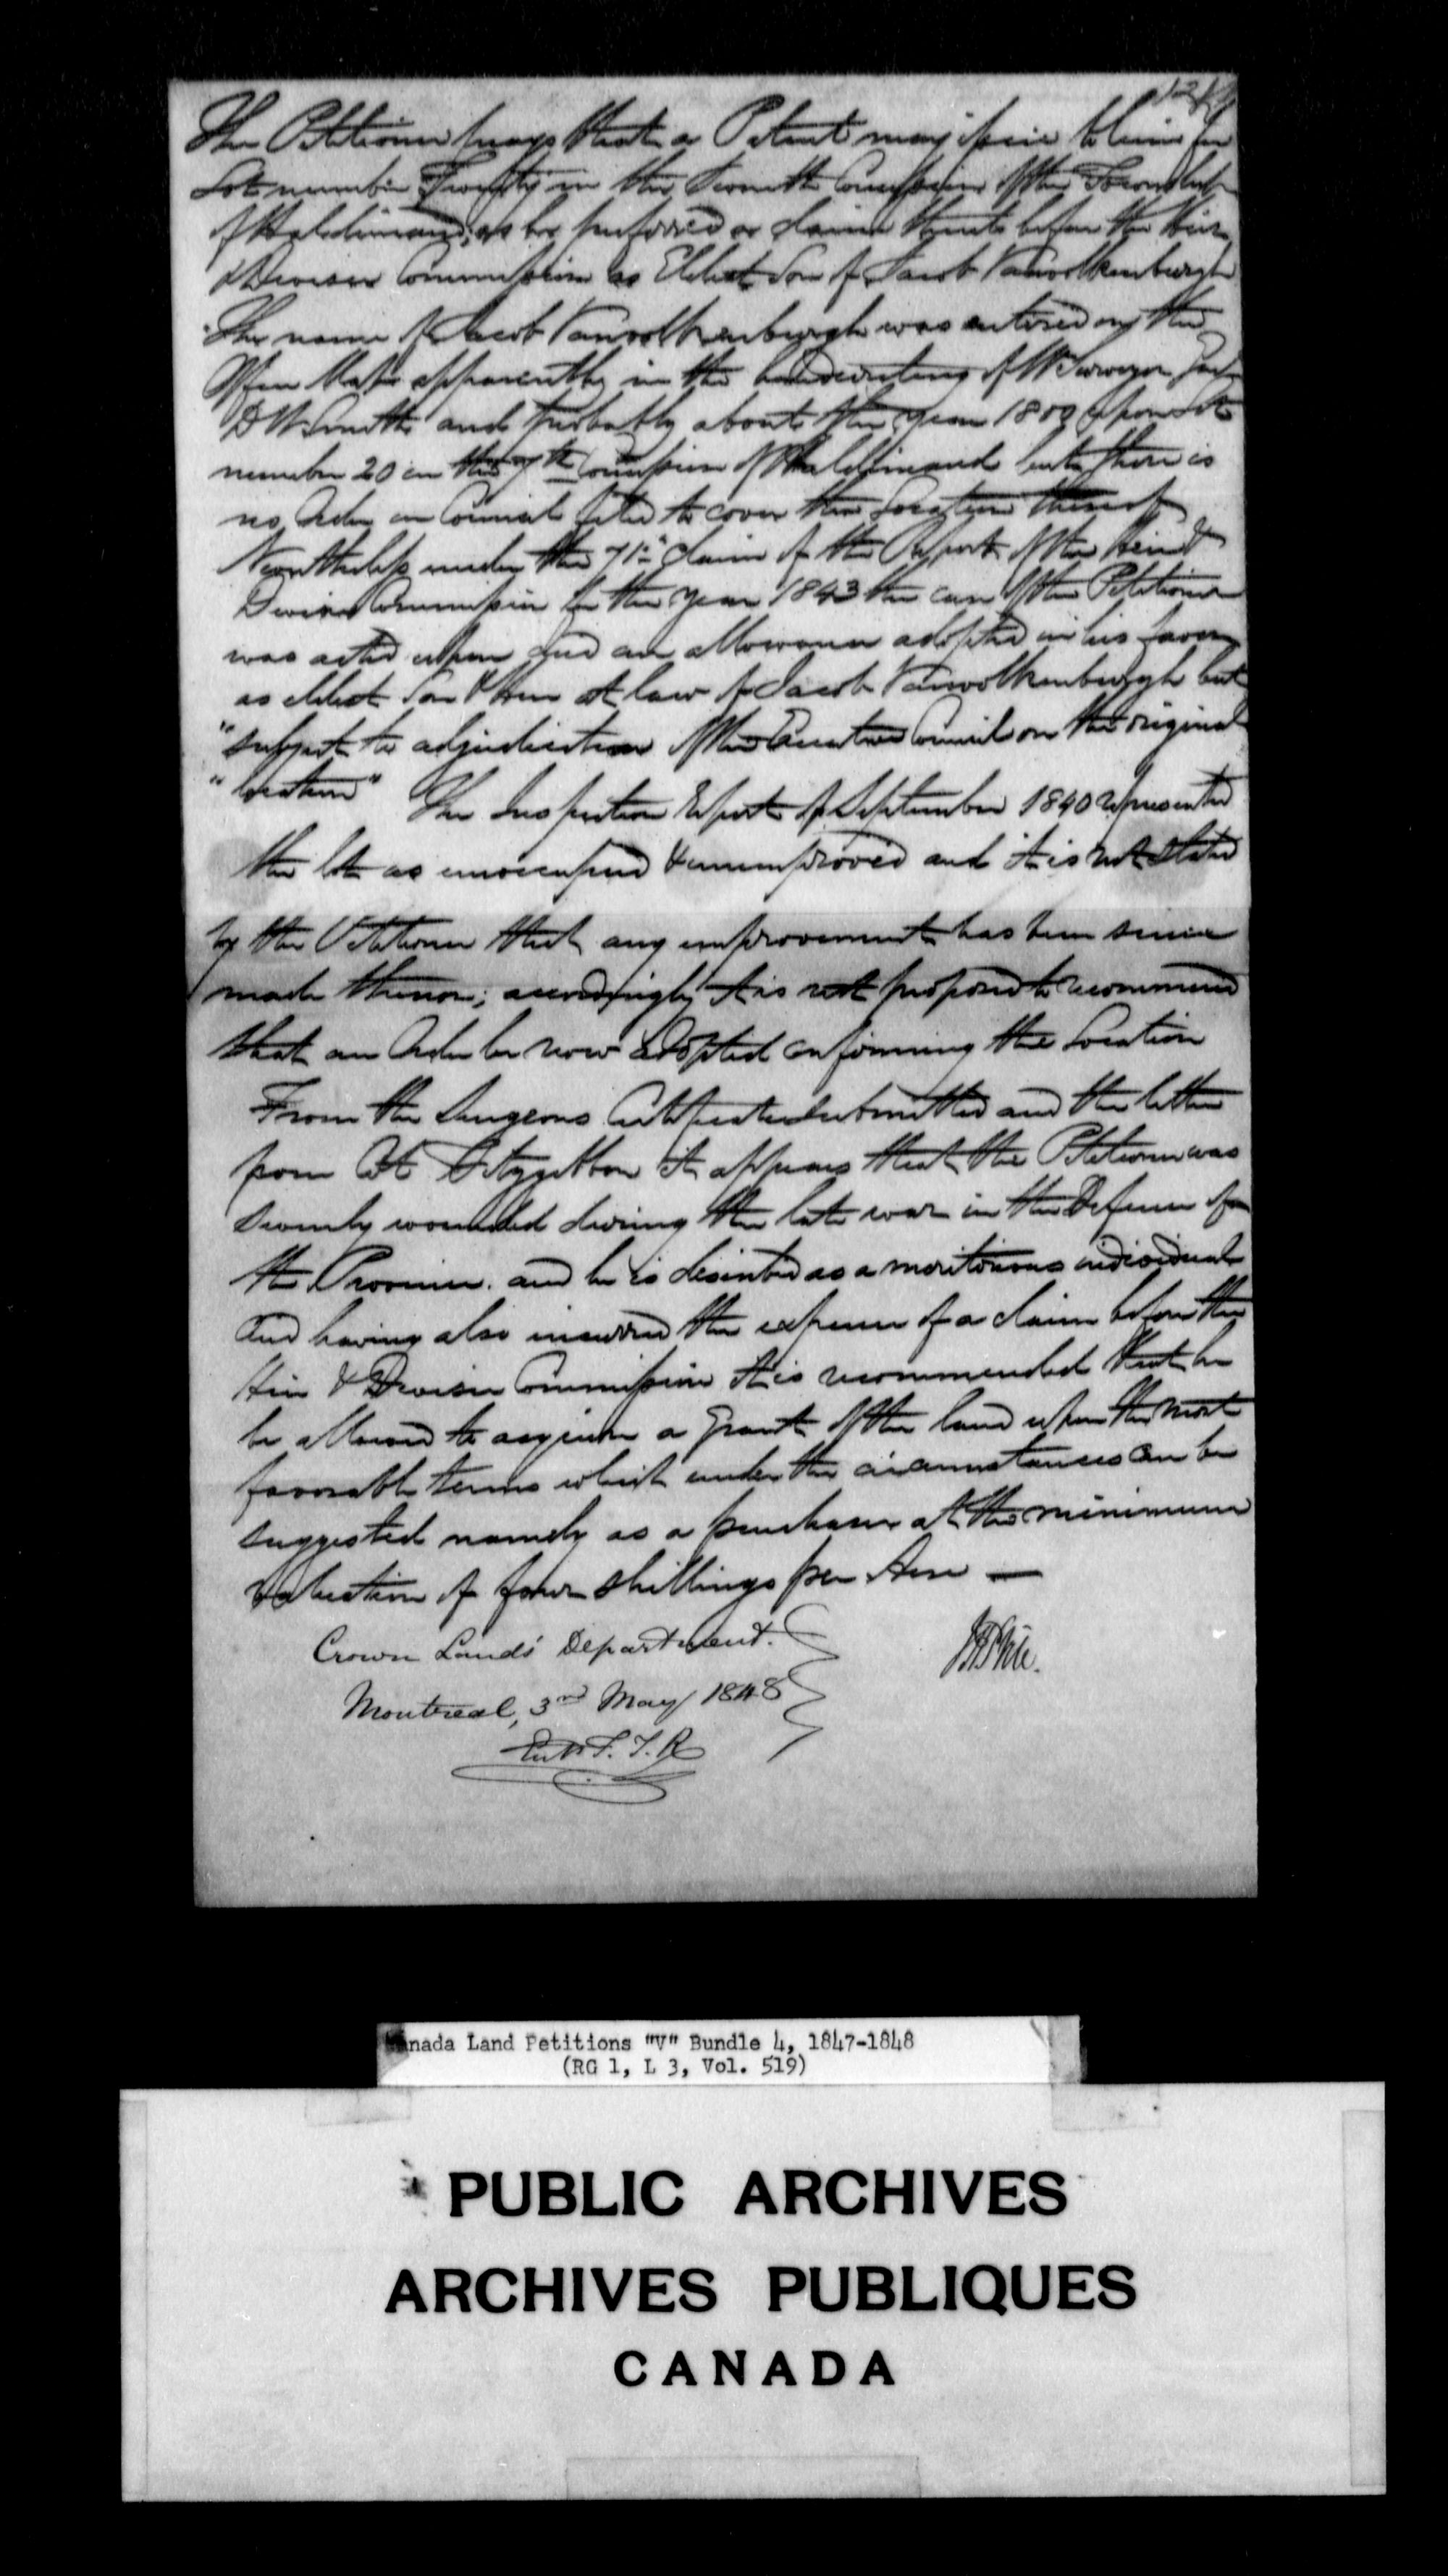 The Petitioner prays that a Patent may issue to him for
Lot number Twenty in the Seventh Concession of the Township
of Haldimand, as he preferred a claim thereto before the Heir
& Devisee Commission as Eldest Son of Jacob Vanvolkenburgh
The name of Jacob Vanvolkenburgh was entered on the
Office Map apparently in the handwriting of Mr Surveyor Genl
D W Smith and probably about the year 1800 upon Lot
number 20 in the 7th Concession of Haldimand but there is
no Order in Council filed to cover the Location thereof
Nevertheless under the 71st claim of the Report of the Heir &
Devisee Commission for the year 1843 the case of the Petitioner
was acted upon and an allowance adopted in his favor
as eldest Son & heir at law of Jacob Vanvolkenburgh but
"subject to adjudication of the Executive Council on the original
"location" The Inspection Report of September 1840 represented
the lot as unoccupied & unimproved and it is not stated
by the Petitioner that any improvement has been since
made thereon; accordingly it is not proposed to recommend
that an Order be now adopted confirming the Location
From the Surgeons Certificate submitted and the letter
from Col Fitzgibbon it appears that the Petitioner was
severely wounded during the late war in the Defence of
the Province. and he is described as a meritorious individual
and having also incurred the expense of a claim before the
Heir & Devisee Commission it is recommended that he
be allowed to acquire a Grant of the land upon the most
favorable terms which under the circumstances can be
suggested namely as a purchaser at the minimum
valuation of four shillings per Acre —
Crown Lands' Department.
Montreal, 3rd May 1848
T. R
Canada Land Petitions "V" Bundle 4, 1847-1848
(RG 1, L 3, Vol. 519)
PUBLIC ARCHIVES
ARCHIVES PUBLIQUES
CANADA